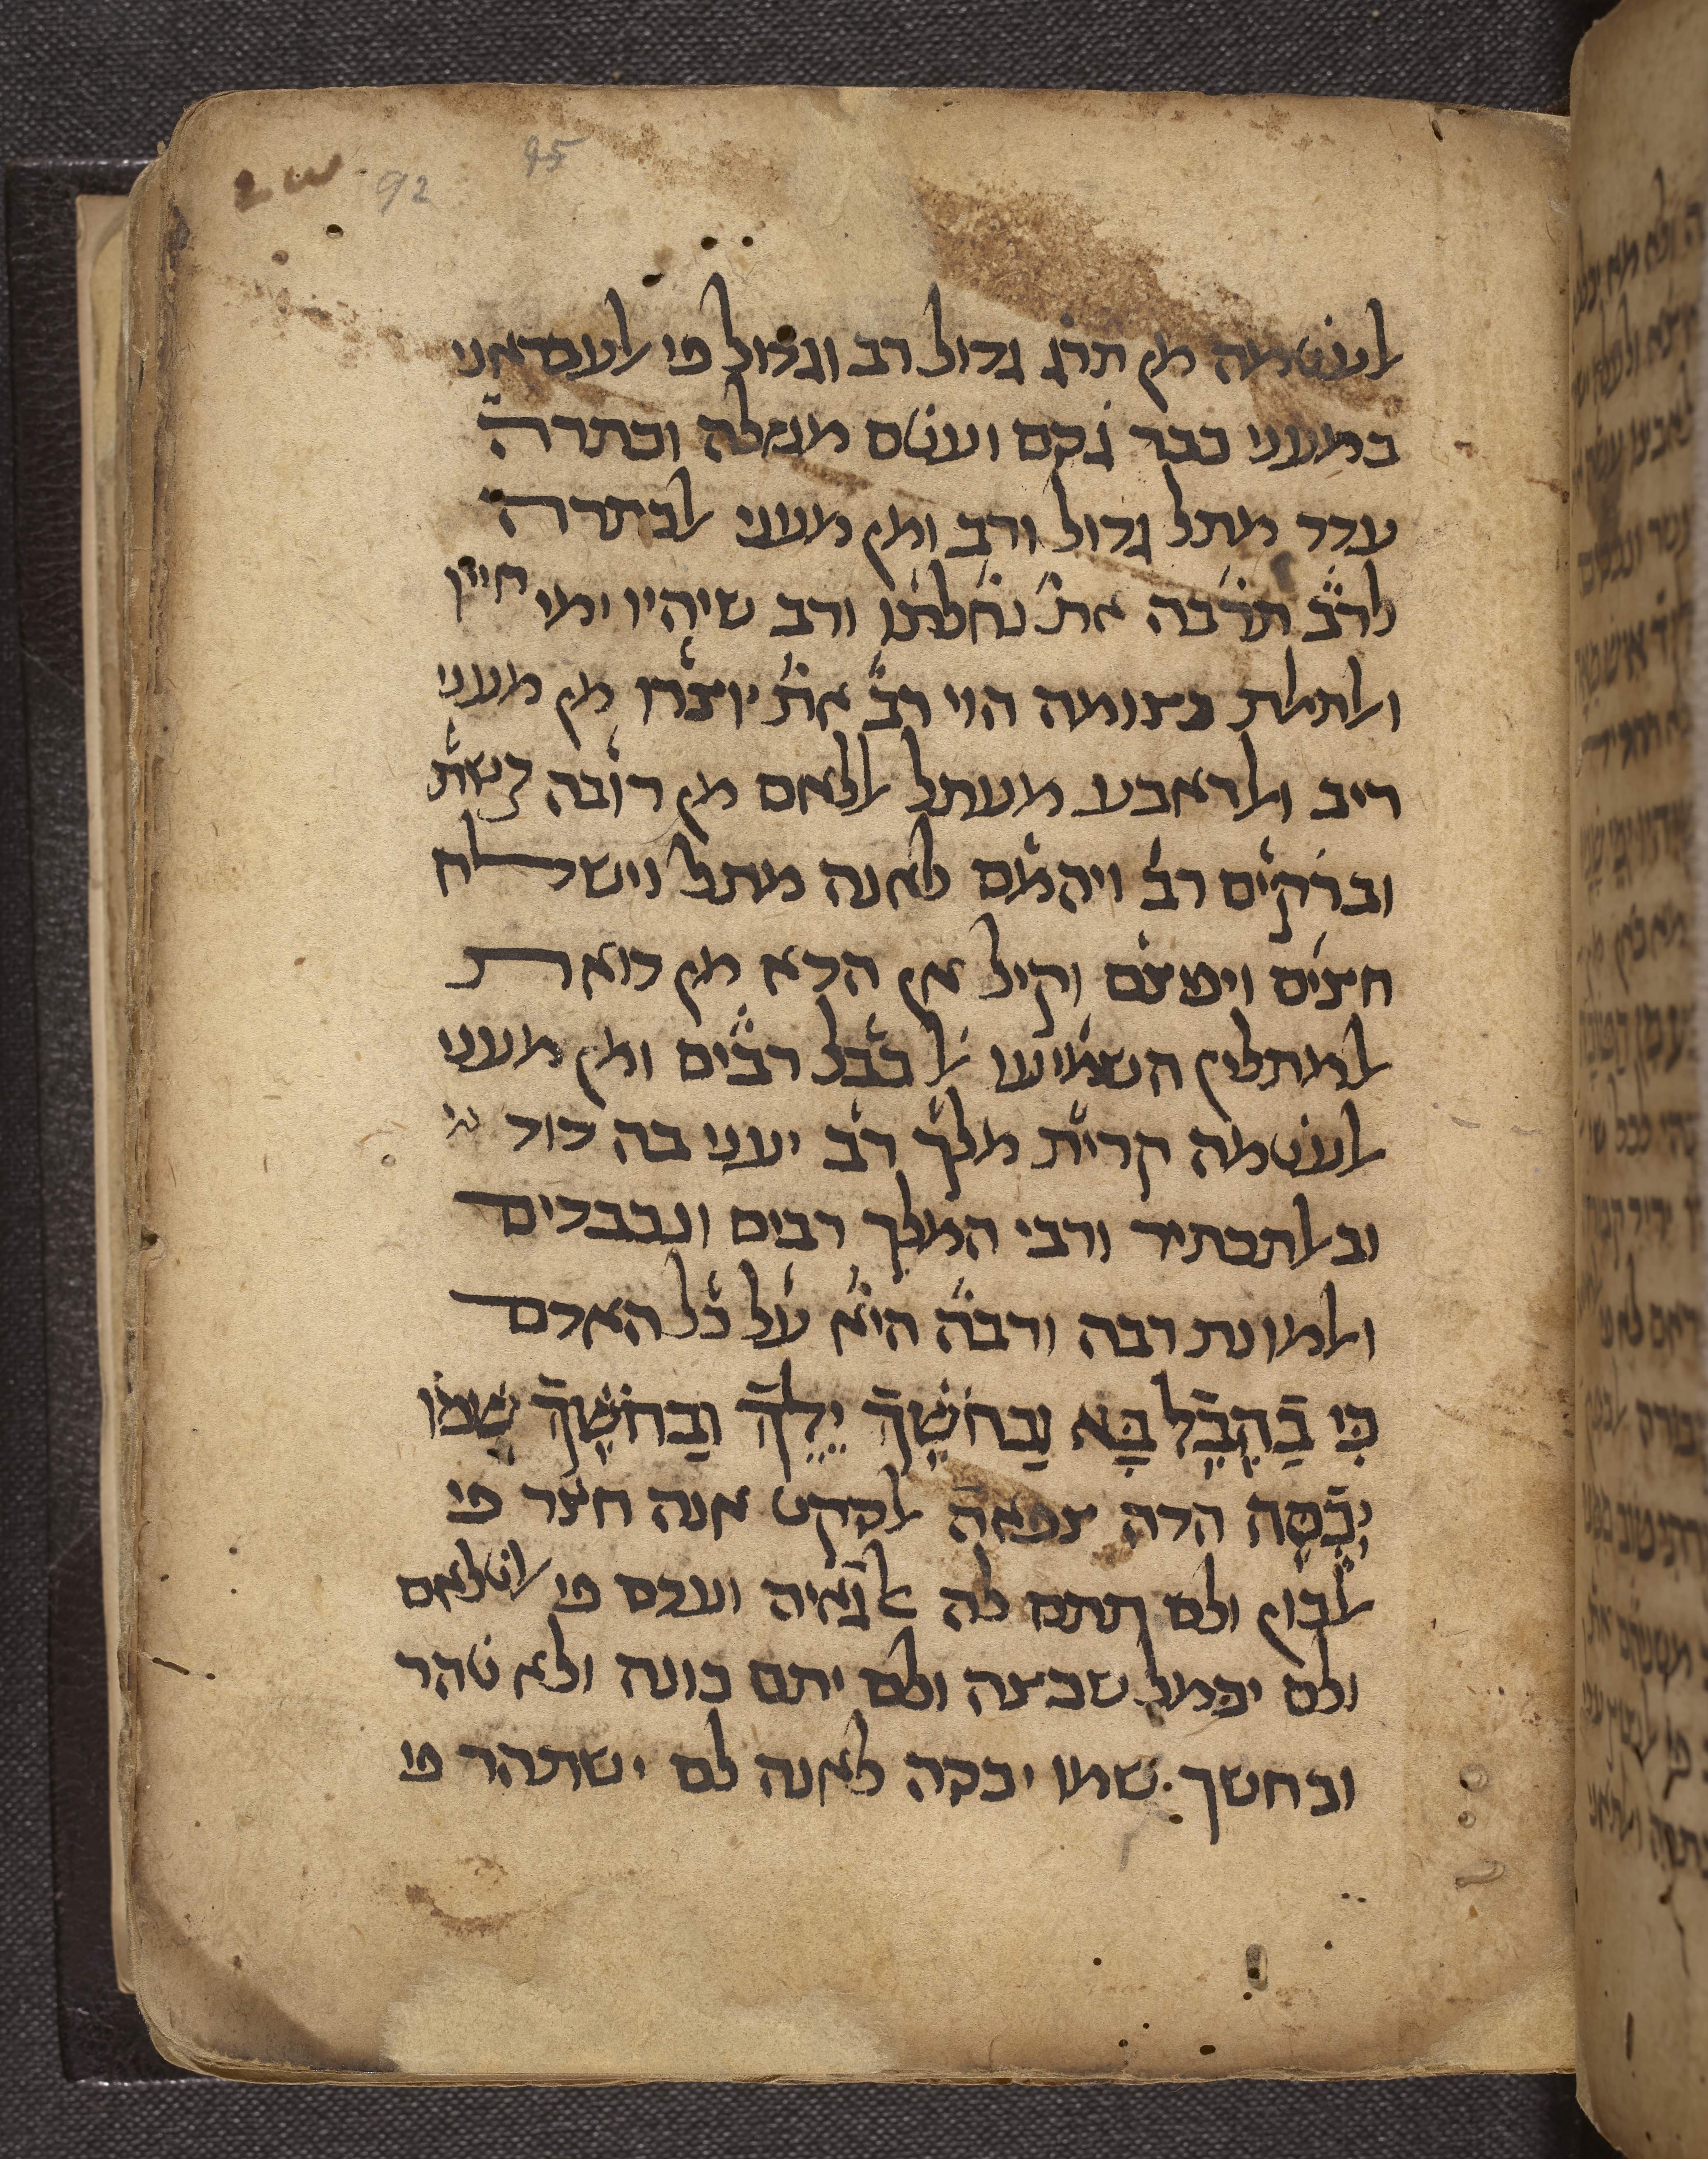 92 95
אלעט̇מה מן תרג̇ גדול רב וגדול פי אלעבראני
במעני כבר ג̇סם ועט̇ם מנזלה וכת̇רה̈
עדד מת̇ל גדול ורב ומן מעני אלכת̇רה̈
לרב תרבה את נחלתו ורב שיהיו ימי חייו
ואלת̇אלת̇ כצומה הוי רב את יוצרו מן מעני
ריב ואלראבע מעתל אללאם מן רובה קשת
וברקים רב ויהמם לאנה מת̇ל וישלח
חצים ויפיצם וקיל אן הדא מן דואת
אלמת̇לין השמיעו אל בבל רבים ומן מעני
אלעט̇מה קרית מלך רב יעני בה דוד
ובאלתכת̇יר ורבי המלך רבים ונכבדים
ואלמונת̇ רבה ורבה היא על כל האדם
כִּי בַהֶבֶל בָּא וּבַחֹשֶׁךְ יֵלֵךְ וּבַחֹשֶׁךְ שְׁמוֹ
יְכֻסֶּה הדה צפאה̈ אלסקט אנה חצ̇ר פי
אלכון ולם תתם לה אלגאיה ועדם פי אלט̇לאם
ולם יכמל שכצה ולם יתם כונה ולא ט̇הר
ובחשך שמו יכסה לאנה לם ישתהר פי